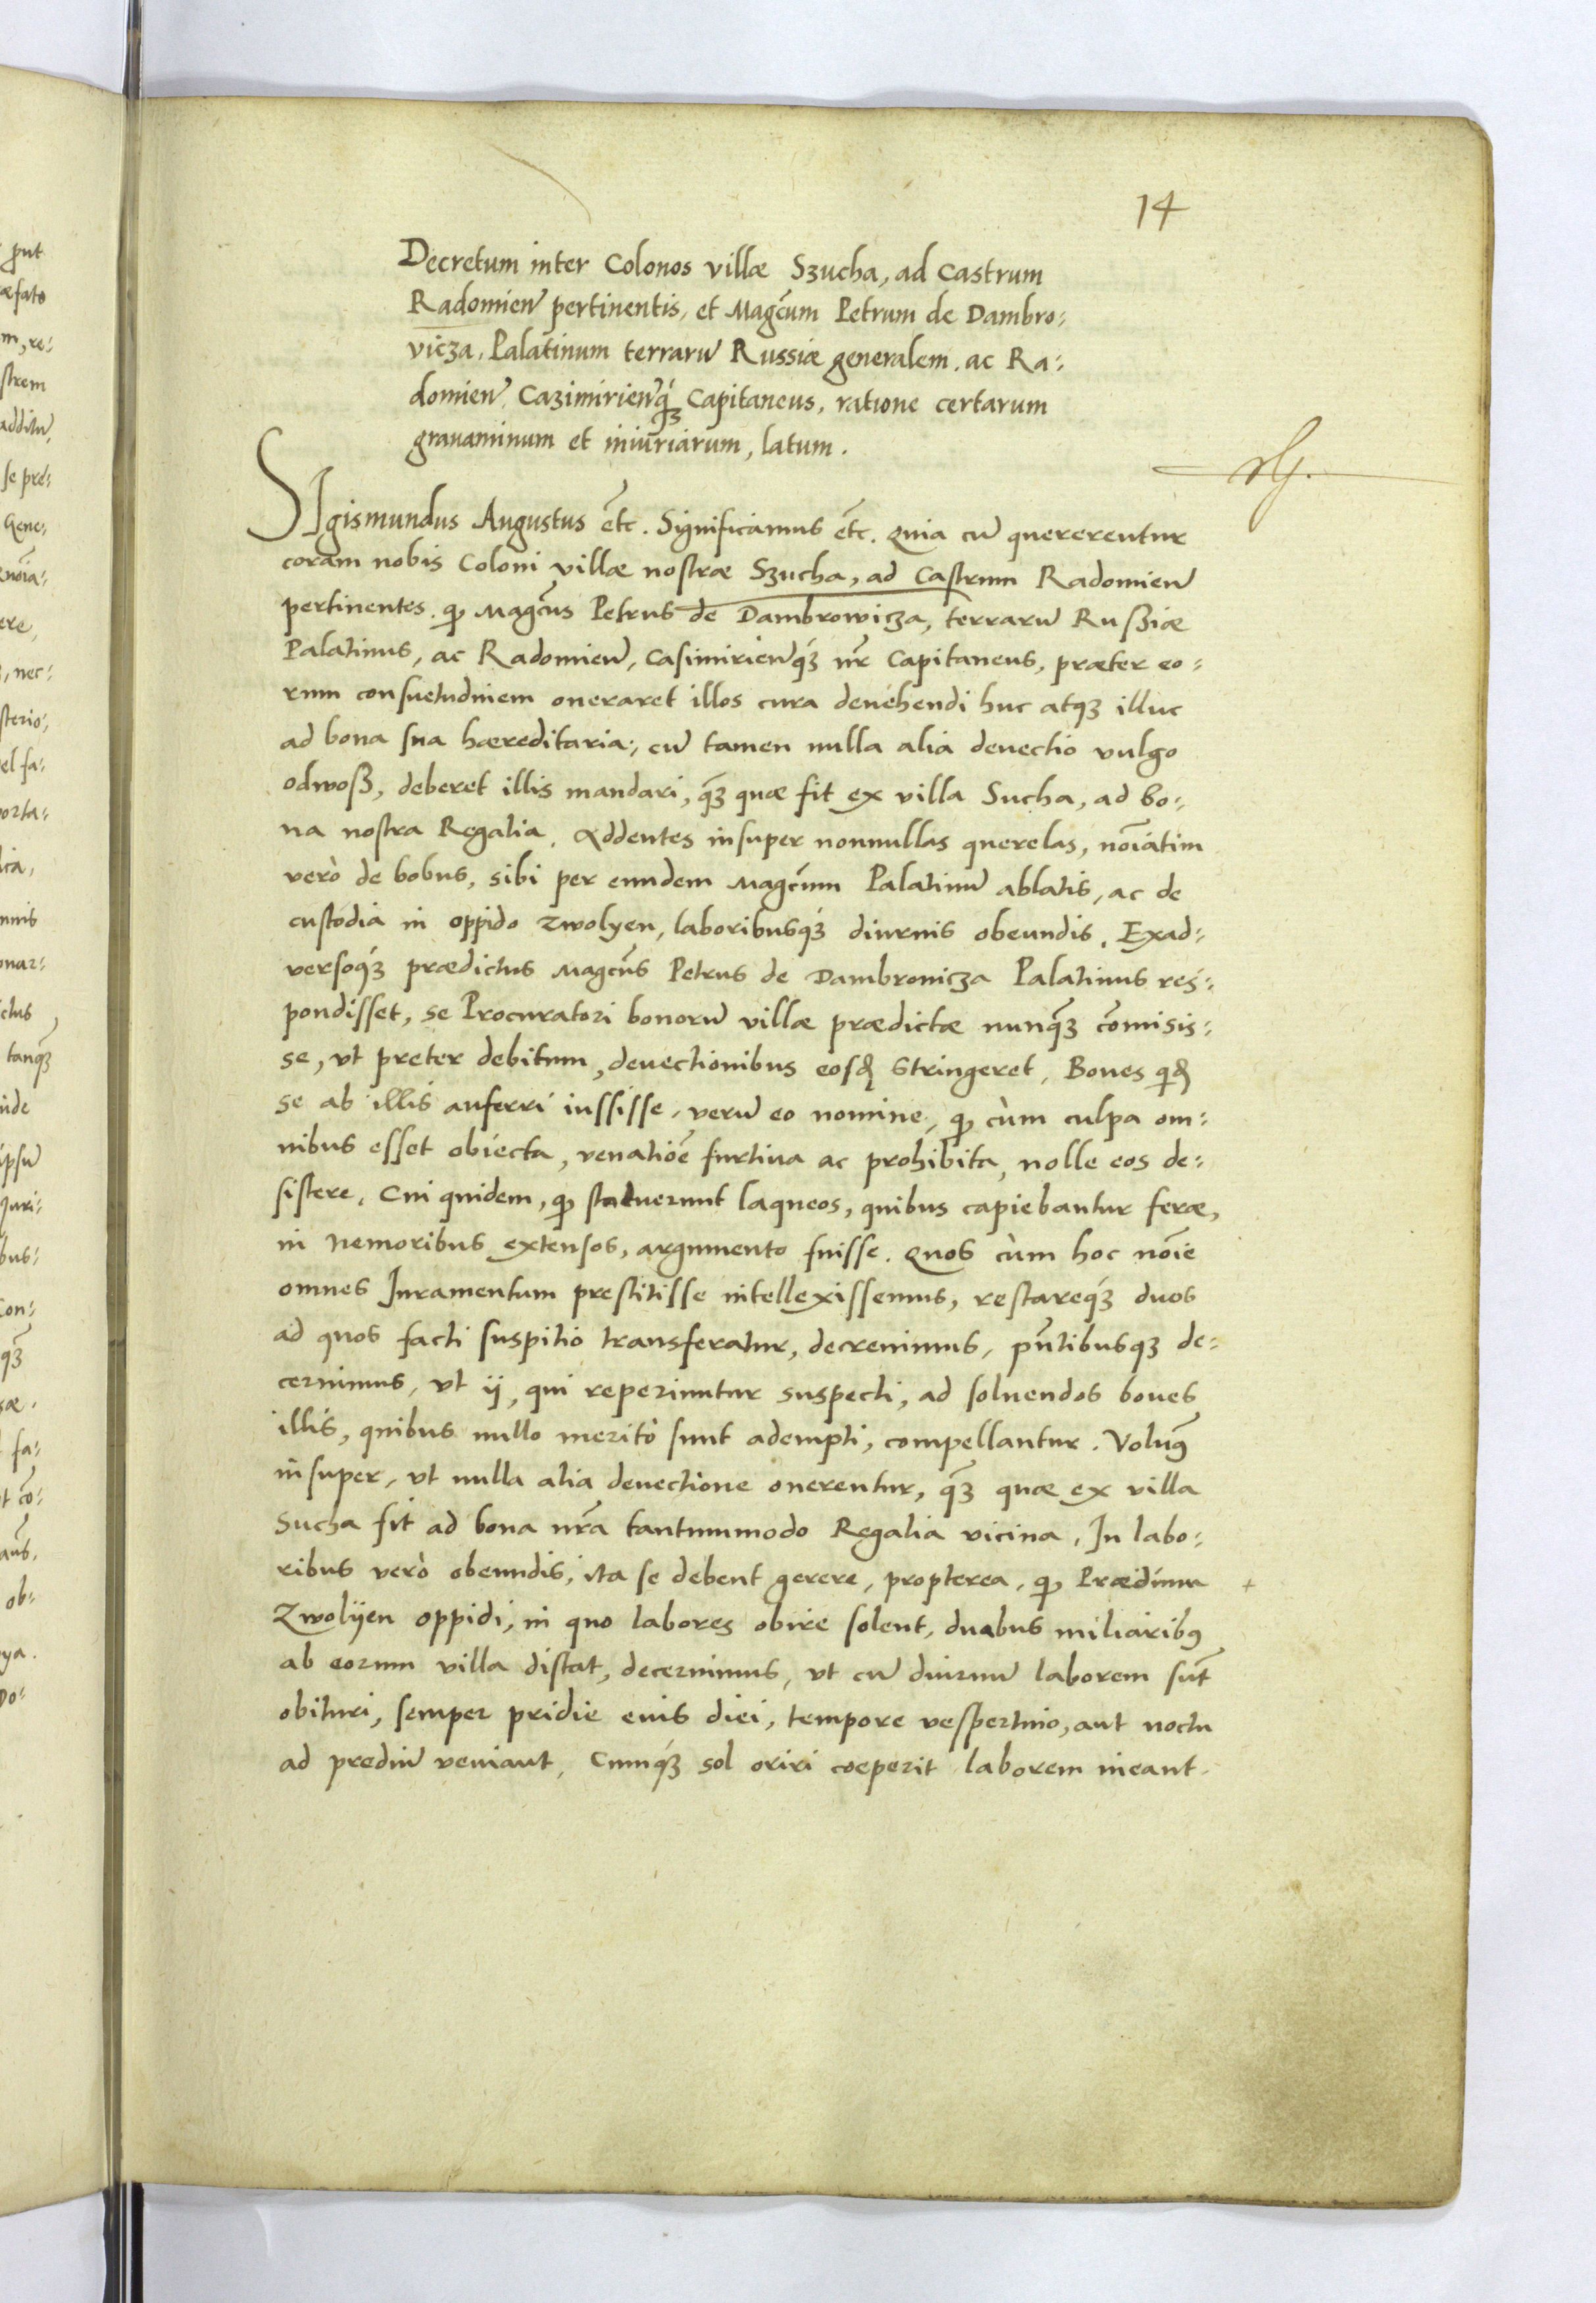 14
Decretum inter Colonos villæ Szucha, ad Castrum
Radomieñ pertinentis, et Magcum Petrum de Dambro:
vicza, Palatinum terrarũ Russiæ generalem, ac Ra:
domieñ Cazimirieñq́ʒ Capitaneus, ratione certarum
grauaminum et iniuriarum, latum.
SIgismundus Augustus etc̃. Significamus etc̃. Quia cũ quererentur
coram nobis Coloni villæ nostræ Szucha, ad Castrum Radomieñ
pertinentes. ꝙ Magcus Petrus de Dambrowicza, terrarũ Rusziæ
Palatinus, ac Radomieñ, Casimirieñq́ʒ nr̃ Capitaneus, præter eo:
rum consuetudinem oneraret illos cura deuehendi huc atqʒ illuc
ad bona sua hæreditaria, cũ tamen nulla alia deuectio vulgo
odwosz, deberet illis mandari, q̃ʒ quæ fit ex villa Sucha, ad bo:
na nostra Regalia. Addentes insuper nonnullas querelas, noĩatim
verò de bobus, sibi per eundem Magcum Palatinũ ablatis, ac de
custodia in oppido Zwolyen, laboribusq́ʒ diurnis obeundis. Exad:
versoq́ʒ prædictus Magcus Petrus de Dambrouicza Palatinus res:
pondisset, se Procuratori bonorũ villæ prædictæ nunq̃ʒ com̃isis:
se, vt preter debitum, deuectionibus eosd̃ stringeret, Boues qid̃
se ab illis auferri iussisse, verũ eo nomine, ꝙ cùm culpa om:
nibus esset obiecta, venatiõe furtiua ac prohibita, nolle eos de:
sistere. Cui quidem, ꝙ statuerunt laqueos, quibus capiebantur feræ,
in nemoribus extensos, argumento fuisse. Quos cùm hoc noĩe
omnes Iuramentum prestitisse intellexissemus, restareq́ʒ duos
ad quos facti suspitio transferatur, decreuimus, pñtibusqʒ de:
cernimus, vt ij, qui reperiuntur suspecti, ad soluendos boues
illis, quibus nullo meritò sunt adempti, compellantur. Volumꝰ
insuper, vt nulla alia deuectione onerentur, q̃ʒ quæ ex villa
Sucha fit ad bona nr̃a tantummodo Regalia vicina. In labo:
ribus verò obeundis, ita se debent gerere, propterea, ꝙ Prædium +
Zwolÿen oppidi, in quo labores obire solent, duabus miliaribꝰ
ab eorum villa distat, decernimus, vt cũ diurnũ laborem sũt
obituri, semper pridie eius diei, tempore vespertino, aut noctu
ad prediũ veniant, Cumq́ʒ sol oriri cœperit laborem ineant.